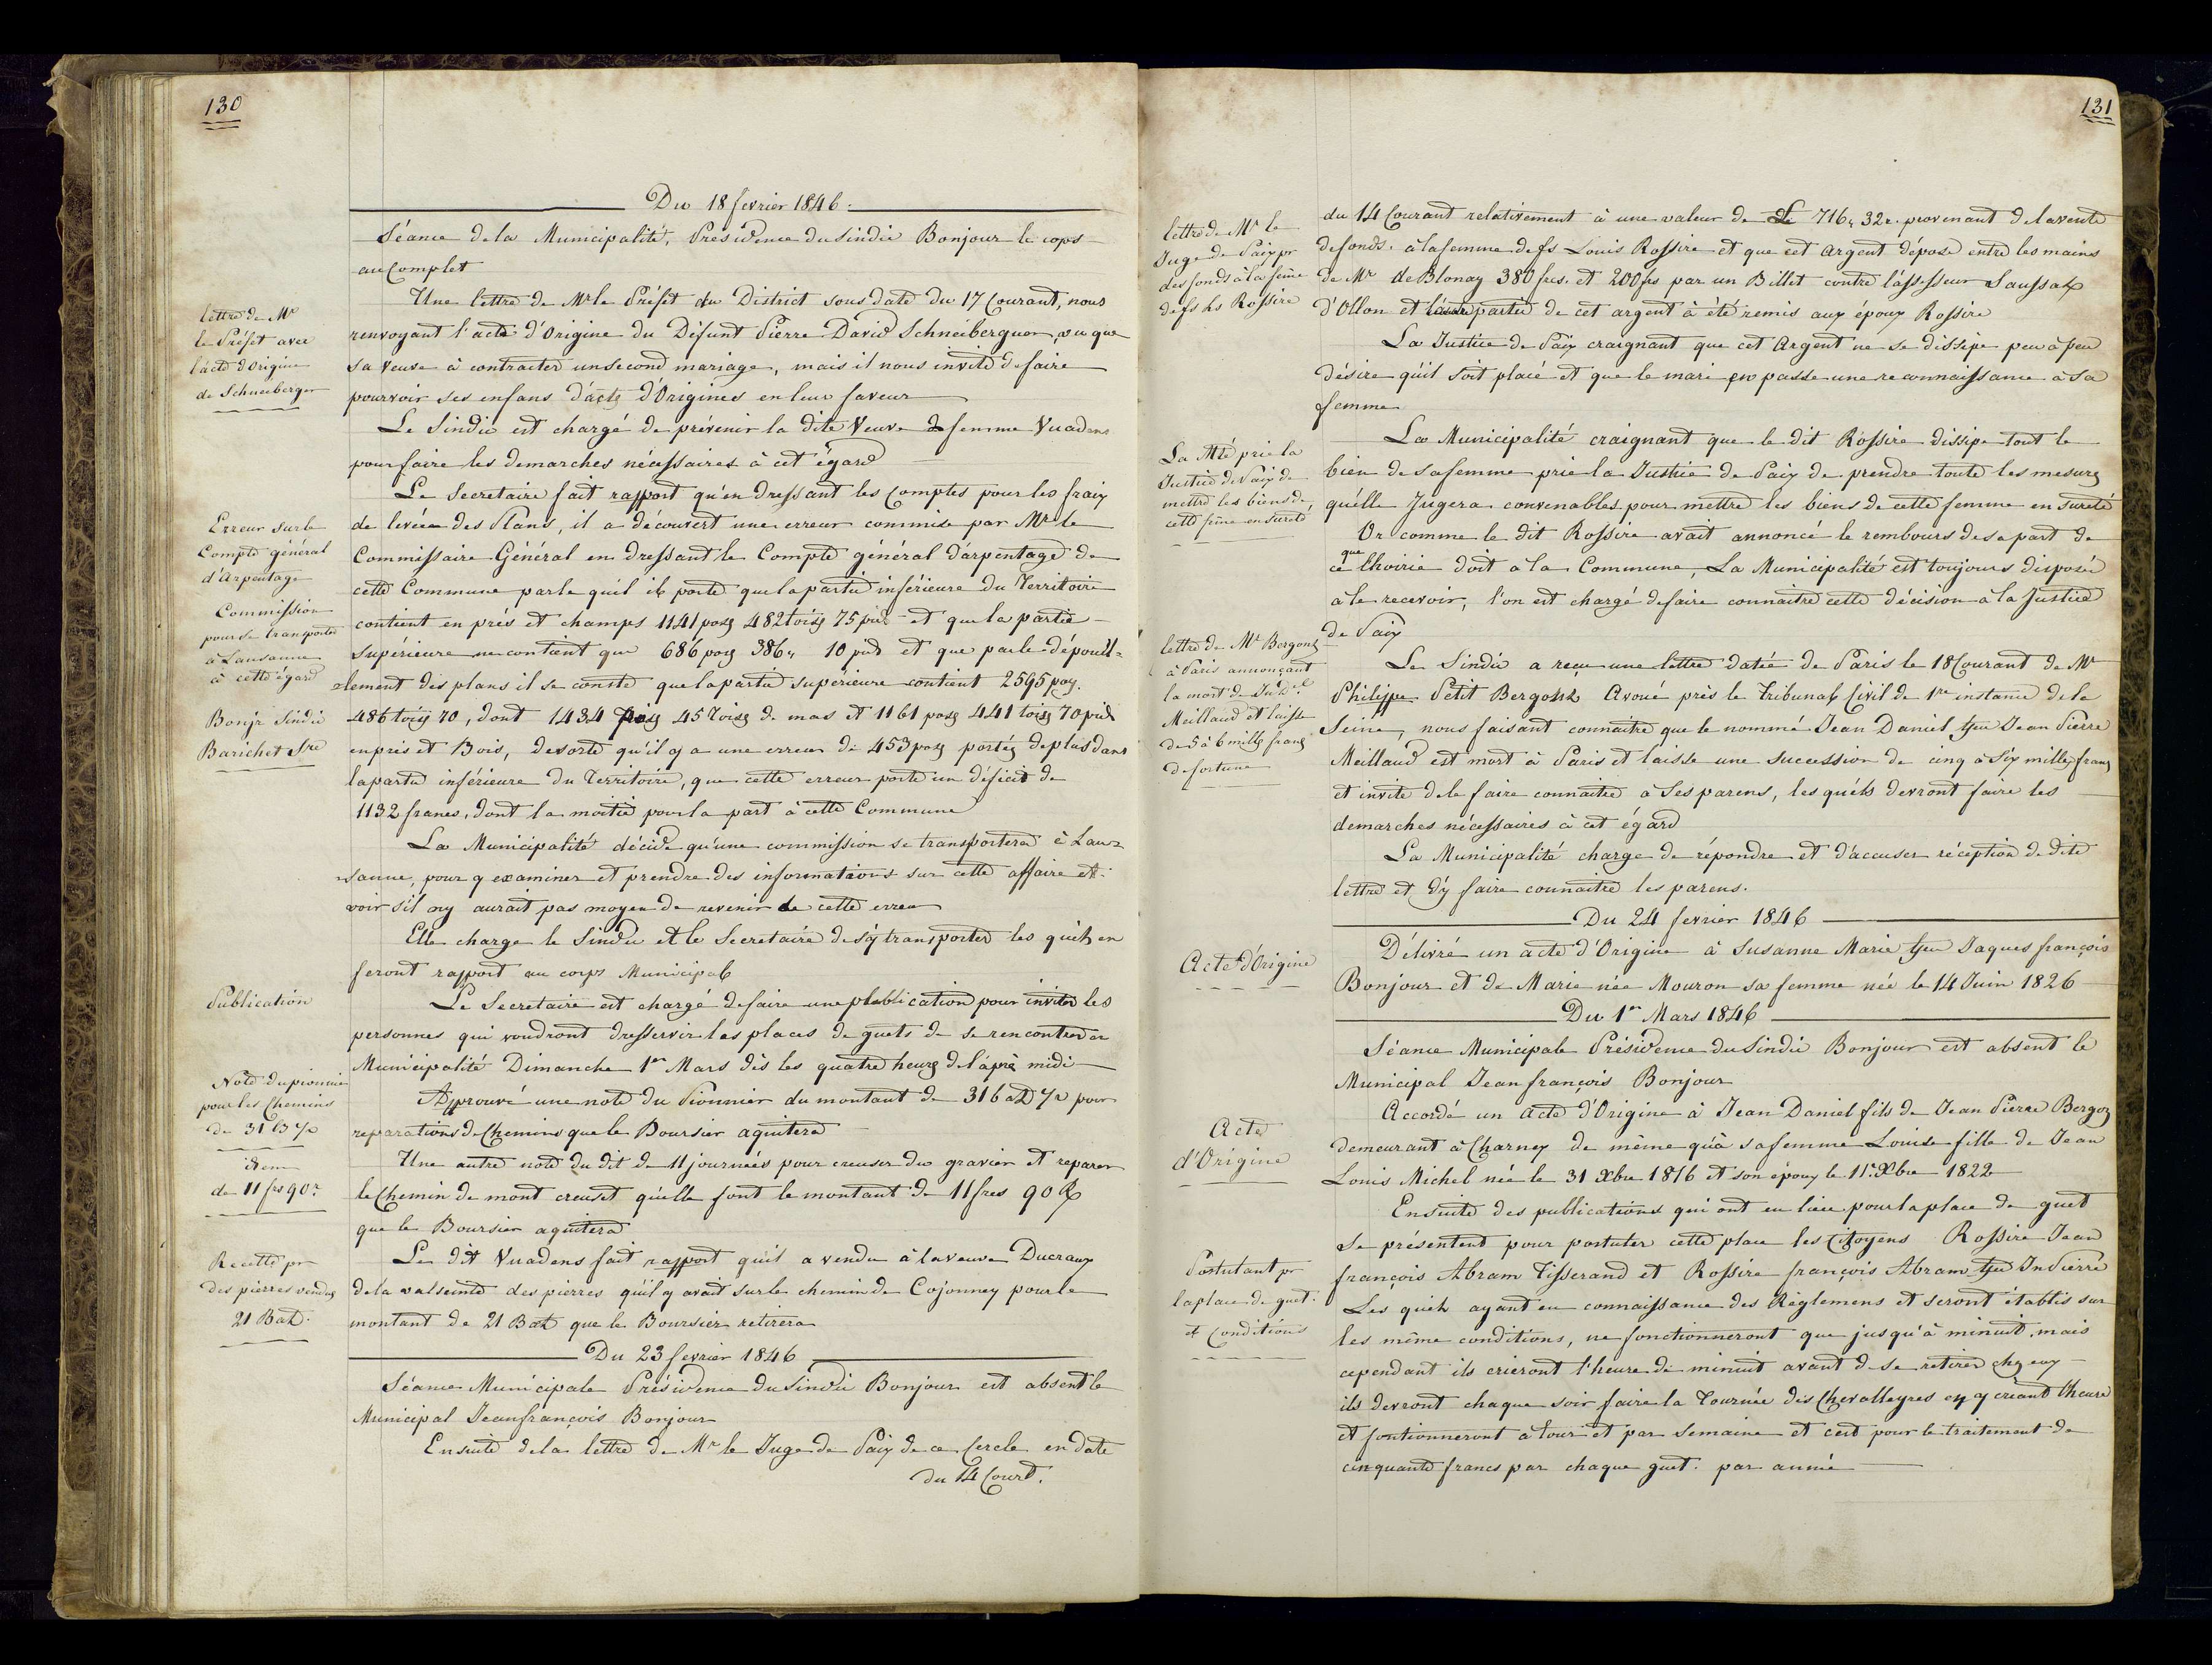 130
Du 18 fevrier 1846.
Séance de la Municipalité, Présidence du Sindic Bonjour le cops
au Complet
lettre de Mr
le Préfet avec
l'acte d'Origine
de Schneeberger
Une lettre de Mr le Préfet du District sous date du 17 Courant, nous
renvoyant l'acte d'Origine du Défunt Pierre David Schneeberguer, vu que
sa Veuve à contracter un second mariage, mais il nous invite de faire
pourvoir ses enfans d'acts d'Origines en leur faveur
Le Sindic est chargé de prévenir la dite Veuve femme Vuadens
pour faire les demarches nécessaires à cet égard
Erreur sur le
Compte général
d'Arpentage
Commission
pour se transporter
à Lausanne
à cette égard
Bonjr Sindic
Barichet Sre
Le Secretaire fait rapport qu'en dressant les Comptes pour les fraix
de levée des Plans, il a découvert une erreur commise par Mr le
Commissaire Général en dressant le Compte général d'arpentage de
cette Commune par le quel il porte que la partie inférieure du Territoire
contient en prés et champs 1141 poses 482 toises 75 pieds et que la partie
Supérieure ne contient que 686 poses 386 " 10 pieds et que par le dépouil=
=lement des plans il se conste que la partie supérieure contient 2595 poses.
486 toises 70, dont 1434 poses 45 toises de mas et 1161 poses 441 toises 70 pieds
en prés et Bois, de sorte qu'il y a une erreur de 453 poses portés de plus dans
la partie inférieure du Territoire, que cette erreur porte un déficit de
1132 francs, dont la moitié pour la part à cette Commune
La Municipalité décide qu'une commission se transportera à Lau=
=sanne, pour y examiner et prendre des informations sur cette affaire et
voir s'il ny aurait pas moyen de revenir de cette erreur
Elle charge le Sindic et le Secretaire de s'y transporter les quels en
feront rapport au corps Municipal
Publication
Le Secretaire est chargé de faire une publication pour inviter les
personnes qui voudront desservir les places de guets de se rencontrer en
Municipalité Dimanche 1er Mars dès les quatre heures de l'après midi
Note du pionnier
pour les Chemins
de 31 B
Approuvé une note du Pionnier du montant de 316 pour
reparations de Chemins que le Boursier aquitera
idem
de 11 frs 90 r
Une autre note du dit de 11 journées pour creuser du gravier et reparer
le Chemin de mont creuset qu'elle font le montant de 11 frcs 90 R
que le Boursier aquitera
Recette pr
des pierres vendues
21 Batz.
Le dit Vuadens fait rapport quil a vendu à la veuve Ducraux
de la valseinte des pierres qu'il y avait sur le chemin de Cojonney pour le
montant de 21 Batz que le Boursier retirera
Du 23 fevrier 1846
Séance Municipale Présidence du Sindic Bonjour est absent le
Municipal Jean françois Bonjour
Ensuite de la lettre de Mr le Juge de Paix de ce Cercle en date
du 14 Court.
131
lettre de Mr le
Juge de Paix pr
des fonds à la feme
de fs Ls Rossire
du 14 Courant relativement à une valeur de 716 " 32 r. provenant de la vente
de fonds. à la femme de fs Louis Rossire et que cet Argent déposé entre les mains
de Mr de Blonay 380 frcs. et 200 frs par un Billet contre l'assesseur Saussax
d'Ollon et l'autre partie de cet argent à été remis aux époux Rossire
La Justice de Paix craignant que cet Argent ne se dissipe peu à peu
désire qu'il soit placé et que le mari en passe une reconnaissance à sa
femme
La Mté prie la
Justice de Paix de
mettre les biens de
cette feme en sureté
La Municipalité craignant que le dit Rossire dissipe tout le
bien de sa femme prie la Justice de Paix de prendre toute les mesures
qu'elle Jugera convenables pour mettre les biens de cette femme en sureté
Or comme le dit Rossire avait annoncé le rembours de sa part de
ce que l'hoirie doit à la Commune, La Municipalité est toujours disposée
à le recevoir, l'on est chargé de faire connaitre cette décision à la Justice
de Paix
lettre de Mr Bergonz
à Paris annonçant
la mort de Jn Del
Meillaud et laisse
de 5 à 6 mille francs
de fortune
Le Sindic a reçu une lettre datée de Paris le 18 Courant de Mr
Philippe Petit Bergonz Avoué près le Tribunal Civil de 1re instance de la
Seine, nous faisant connaitre que le nommé Jean Daniel ffeu Jean Pierre
Meillaud est mort à Paris et laisse une succession de cinq à Six mille francs
et invite de le faire connaitre à Ses parens, les quels devront faire les
demarches nécessaires à cet égard
La Municipalité charge de répondre et d'accuser réception de dite
lettre et d'y faire connaitre les parens.
Du 24 fevrier 1846
Acte d'Origine
Délivré un acte d'Origine à Susanne Marie ffeu Jaques françois
Bonjour et de Marie née Mouron sa femme née le 14 Juin 1826
Du 1er Mars 1846
Séance Municipale Présidence du Sindic Bonjour est absent le
Municipal Jean françois Bonjour
Acte
d'Origine
Accordé un Acte d'Origine à Jean Daniel fils de Jean Pierre Bergoz
demeurant à Charney de même qu'à sa femme Louise fille de Jean
Louis Michel née le 31 Xbre 1816 et son époux le 11 Xbre 1822
Postulant pr
la place de guet.
et Conditions
Ensuite des publications qui ont eu lieu pour la place de guet
Se présentent pour postuler cette place les Citoyens Rossire Jean
françois Abram Tisserand et Rossire françois Abram ffeu Jn Pierre
Les quels ayant eu connaissance des Règlemens et seront établis sur
les même conditions, ne fonctionneront que jusqu'à minuit, mais
cependant ils crieront l'heure de minuit avant de se retirer chez eux
ils devront chaque soir faire la Tournée des Chevalleyres en y criant l'heure
et fontionneront à tour et par Semaine et cest pour le traitement de
cinquante francs par chaque guet. par année